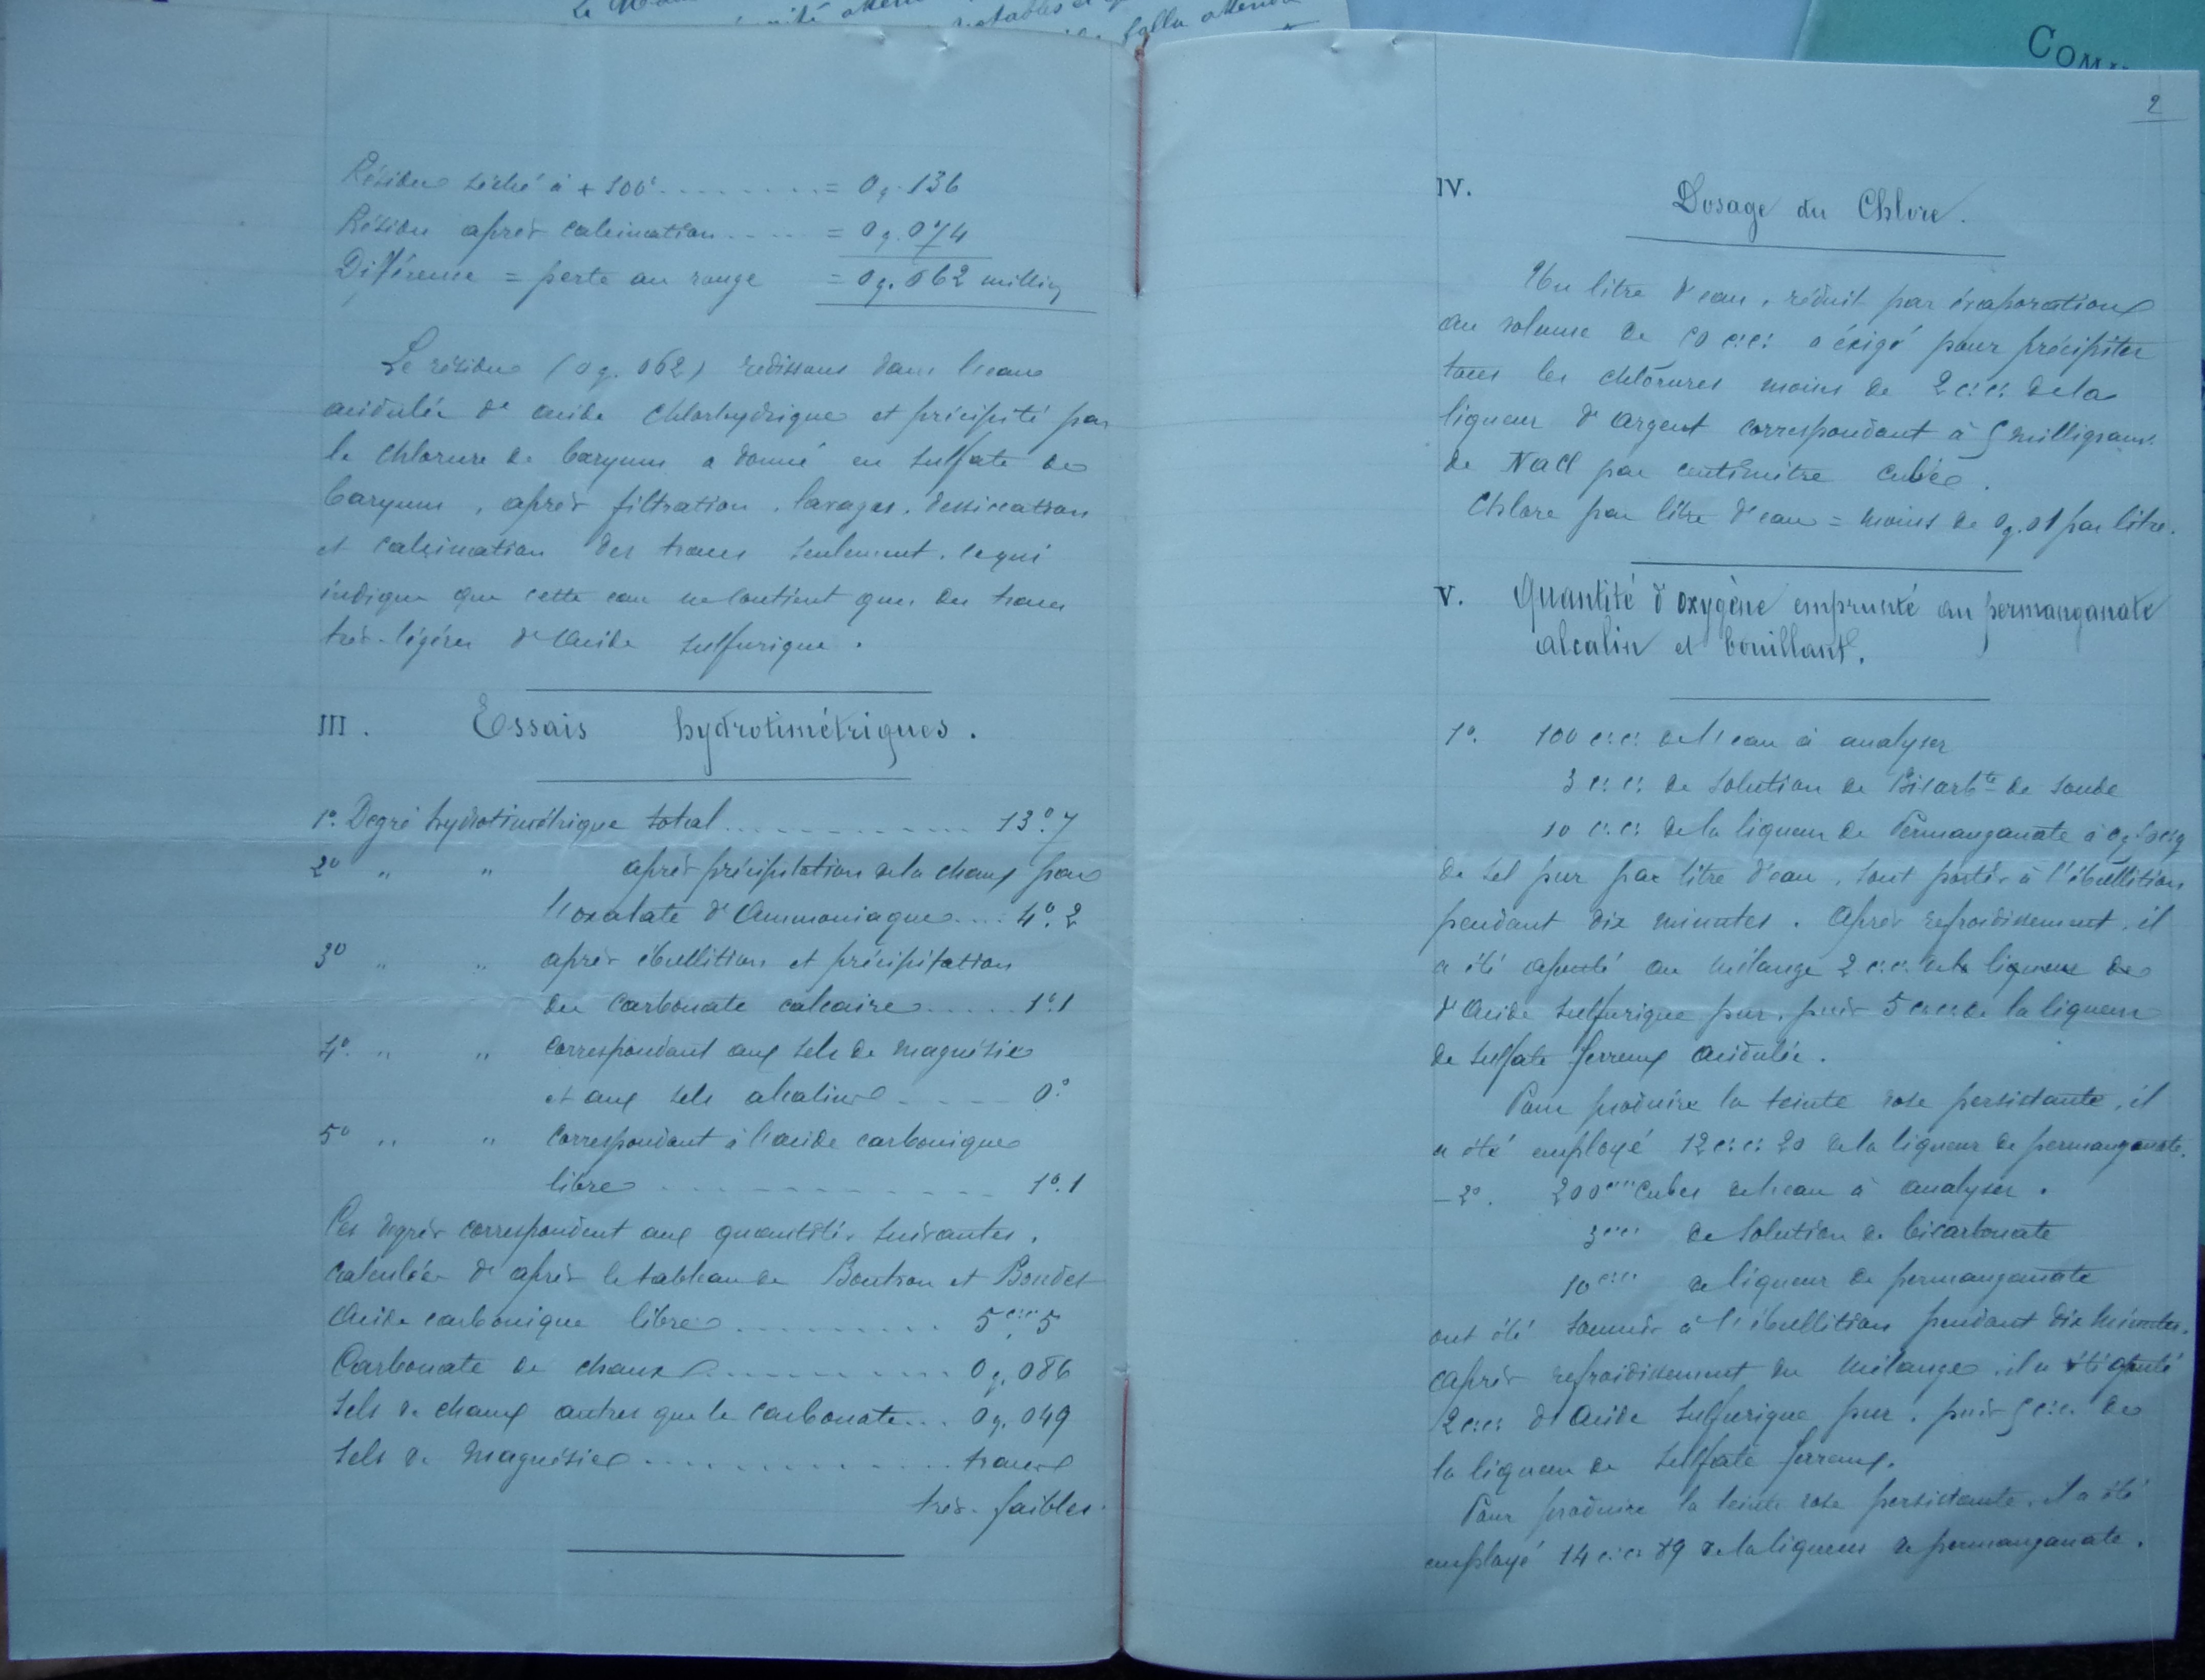 Résidu séché à + 100° . . . . . . . = 0 g. 136
Résidu après calcination . . . . = 0 g. 074
Différence = perte au rouge = 0 g. 062 millig
Le résidu (0 g. 062) redissous dans l'eau
acidulée d'acide chlorhydrique et précipité par
le chlorure de baryum a donné en sulfate de
baryum, après filtration, lavages, dessiccation
et calcination des traces seulement, ce qui
indique que cette eau ne contient que des traces
très-légères d'Acide sulfurique.
III. Essais hydrotimétriques.
1°. Degré hydrotimétrique total . . . . . . . . 13°.7
2° " " après précipitation de la chaux par
l'oxalate d'Ammoniaque . . . . 4°.2
3° " " après ébullition et précipitation
du carbonate calcaire . . . . . 1°.1
4°. " " correspondant aux sels de magnésie
et aux sels alcalins . . . . . 0°.
5° " " correspondant à l'acide carbonique
libre . . . . . . . . . . 1°.1
Ces degrés correspondent aux quantités suivantes,
calculées d'après le tableau de Boutron et Boudet
Acide carbonique libre . . . . . . . . . 5 c.c. 5
Carbonate de chaux . . . . . . . . . . 0 g. 086
Sels de chaux autres que le carbonate . . . 0 g. 049
Sels de Magnésie . . . . . . . . . . . . traces
très-faibles.
2
IV. Dosage du Chlore.
Un litre d'eau, réduit par évaporation
au volume de 50 c.c. a éxigé pour précipiter
tous les chlorures moins de 2 c.c. de la
liqueur d'argent correspondant à 5 milligram.
de NaCl par centimètre cube.
Chlore par litre d'eau = moins de 0 g. 01 par litre.
V. Quantité d'oxygène emprunté au permanganate
alcalin et bouillant.
1°. 100 c.c. de l'eau à analyser
3 c.c. de solution de Bicarb.te de soude
10 c.c. de la liqueur de Permanganate à
de sel pur par litre d'eau, sont portés à l'ébullition
pendant dix minutes. Après refroidissement, il
a été ajouté au mélange 2 c.c. de la liqueur de
d'Acide sulfurique pur, puis 5 c.c. de la liqueur
de sulfate ferreux acidulée.
Pour produire la teinte rose persistante, il
a été employé 12 c.c. 20 de la liqueur de permanganate.
- 2°. 200 cubes de l'eau à analyser.
3 c.c. de solution de bicarbonate
10 c.c. de liqueur de permanganate
ont été soumis à l'ébullition pendant dix minutes.
Après refroidissement du mélange, il a été ajouté
2 c.c. d'Acide sulfurique pur, puis 5 c.c. de
la liqueur de sulfate ferreux.
Pour produire la teinte rose persistante, il a été
employé 14 c.c. 89 de la liqueur de permanganate.